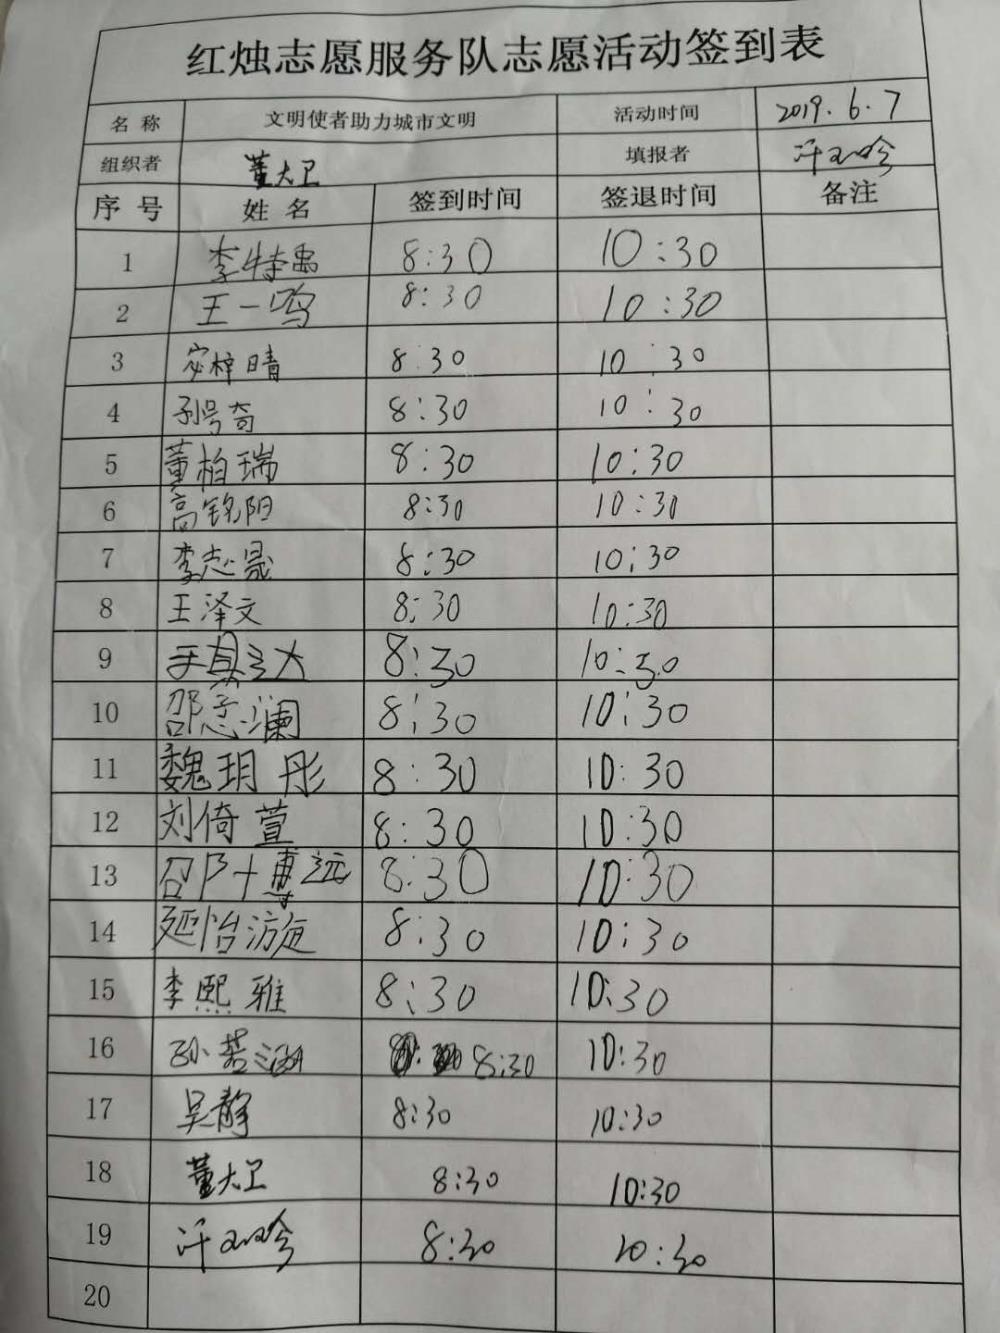 红烛志愿服务队志愿活动签到表
名称 文明使者助力城市文明 活动时间 2019.6.7
组织者 董大卫 填报者
序号 姓名 签到时间 签退时间 备注
1 李特禹 8:30 10:30
2 王一鸣 8:30 10:30
3 安梓晴 8:30 10:30
4 孙号奇 8:30 10:30
5 董柏瑞 8:30 10:30
6 高铭阳 8:30 10:30
7 李志晟 8:30 10:30
8 王泽文 8:30 10:30
9 8:30 10:30
10 邵意澜 8:30 10:30
11 魏玥彤 8:30 10:30
12 刘倚萱 8:30 10:30
13 邵博远 8:30 10:30
14 延怡 8:30 10:30
15 李熙雅 8:30 10:30
16 孙若涵 8:30 10:30
17 吴静 8:30 10:30
18 董大卫 8:30 10:30
19 8:30 10:30
20